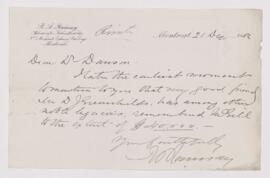 R. A. Ramsay
Montreal
Private
Montreal 21 Dec
Dear Dr Dawson
I take the earliest moment
to mention to you that my good friend
Mr D J Greenshields has among other
noble legacies, remembered McGill
to the extent of $40,000.—
Yours faithfully
R A Ramsay